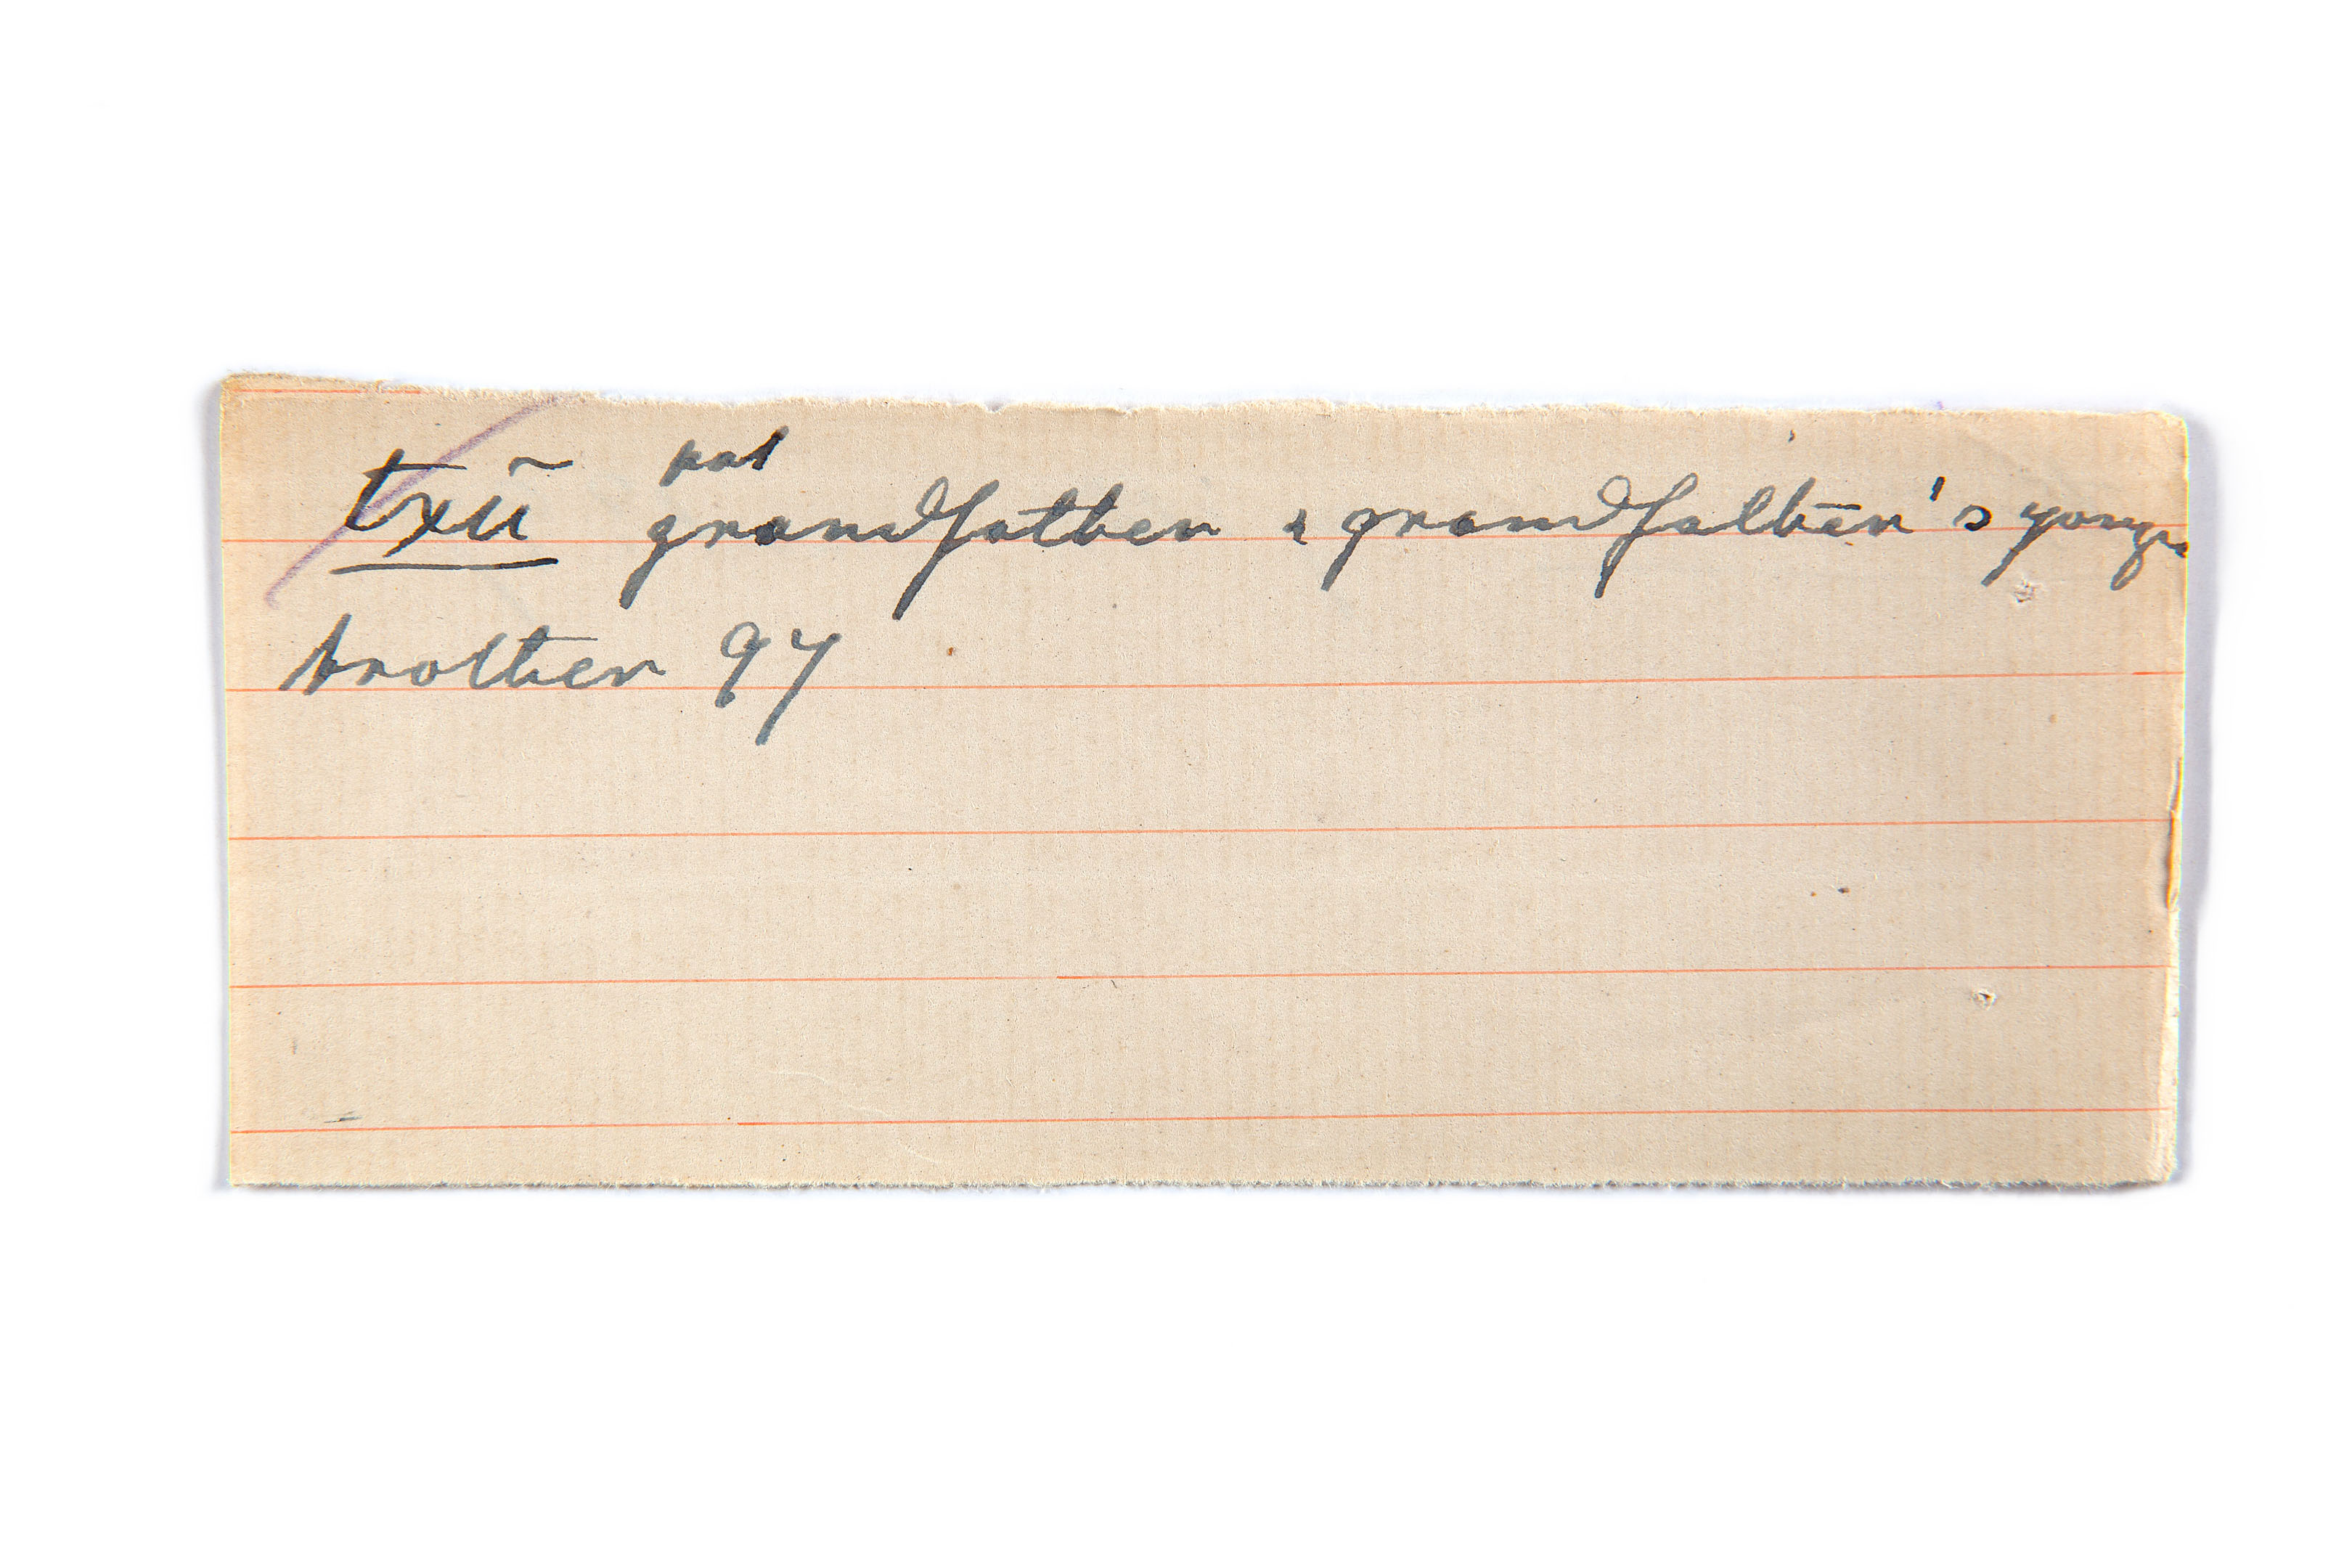 txũ pat
grandfather & grandfather's yonger
brother 97